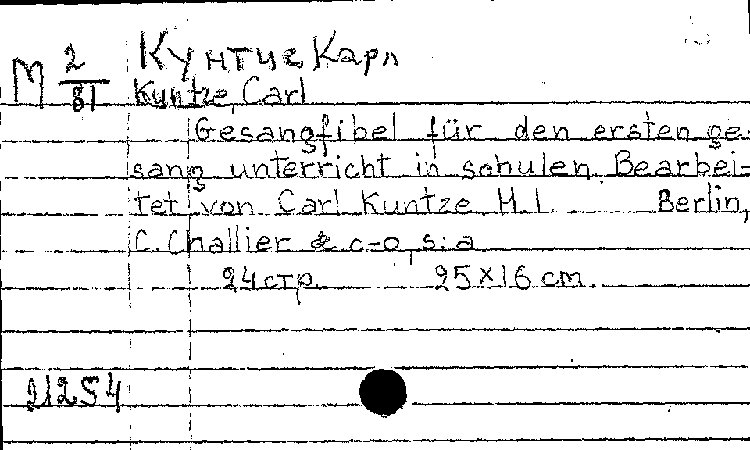 М 2/81 Кунтце Карл
Kuntze, Carl
Gesangfibel für den ersten ge-
sang unterricht in schulen. Bearbei-
tet von Carl Kuntze H. 1. Berlin,
C. Challier & c-o, s. a
24 стр. 25×16 cm.
21254